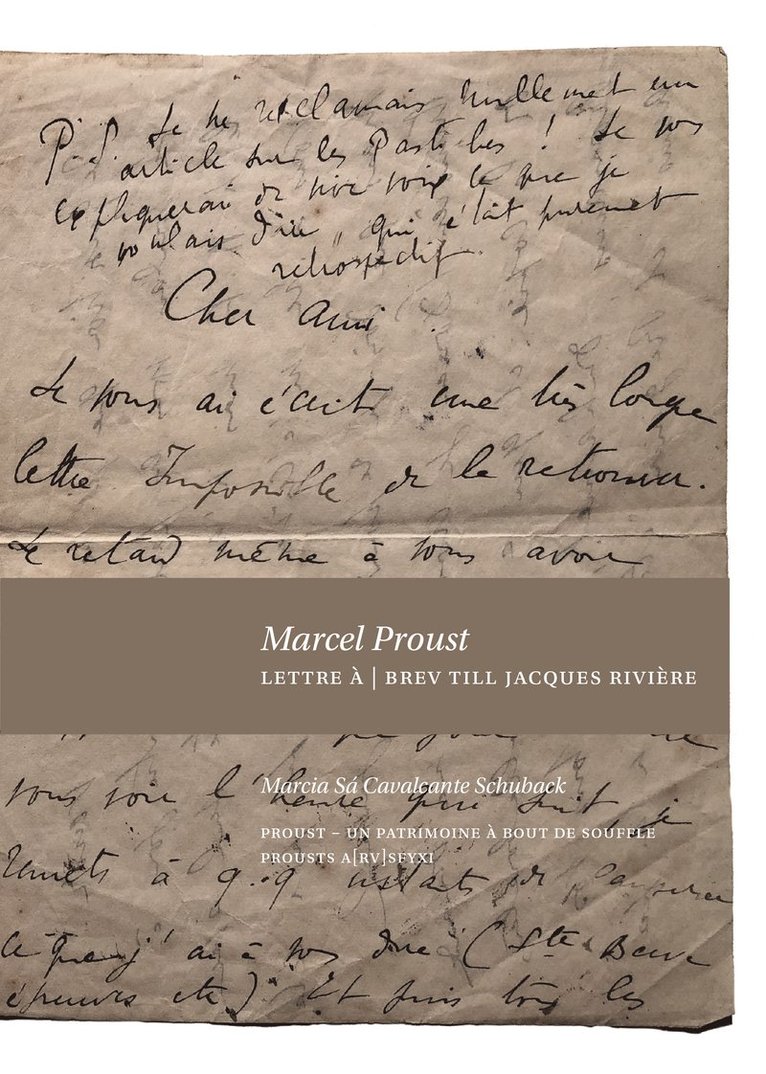 P.S. Je ne réclamais nullement un
article sur les Pastiches ! Je vous
expliquerai de vive voix ce que je
voulais dire, qui était purement
rétrospectif.
Cher ami
Je vous ai écrit une très longue
lettre Impossible de la retrouver.
Le retard même à vous avoir
Marcel Proust
LETTRE À | BREV TILL JACQUES RIVIÈRE
vous voir l'heure qui suit, je
Marcia Sá Cavalcante Schuback
PROUST – UN PATRIMOINE À BOUT DE SOUFFLE
PROUSTS A[RV]SFYXI
remets à q.q instants de
ce que j'ai à vous dire (Ste Beuve
épreuves etc.) Et puis tous les